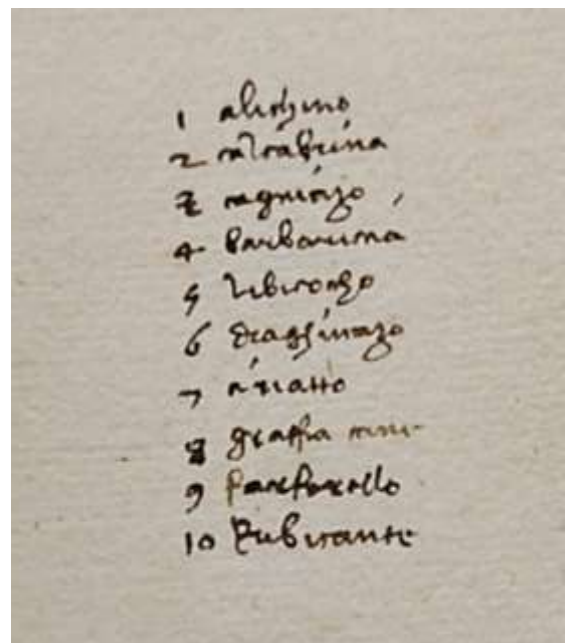 1 alichino
2 calcabrina
3 cagniazo
4 barbaricia
5 libicocho
6 draghinazo
7 ciriatto
8 graffia cane
9 farfarello
10 Rubicante